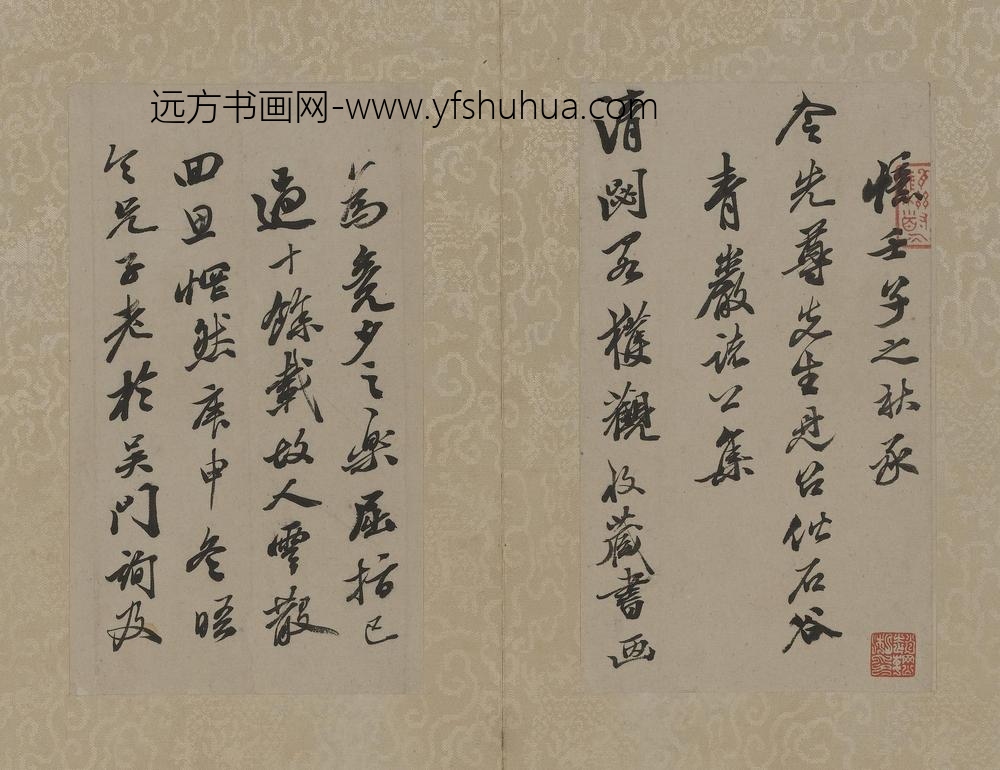 远方书画网-www.yfshuhua.com
憶壬子之秋承
令先尊先生见召偕石谷
青巖諸公集
清閟予獲觀收藏書画
為竟夕之樂屈指已
過十餘載故人雲散
回思惘然庚申冬晤
令兄子老於吴门詢及